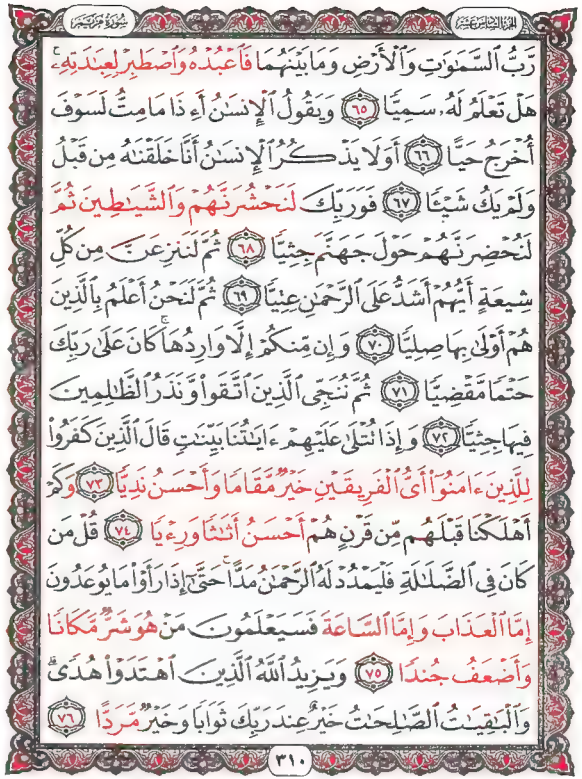 سورة مريم
الجزء السادس عشر
رَّبُّ ٱلسَّمَٰوَٰتِ وَٱلْأَرْضِ وَمَا بَيْنَهُمَا فَٱعْبُدْهُ وَٱصْطَبِرْ لِعِبَٰدَتِهِۦۚ
هَلْ تَعْلَمُ لَهُۥ سَمِيًّا ٦٥ وَيَقُولُ ٱلْإِنسَٰنُ أَءِذَا مَا مِتُّ لَسَوْفَ
أُخْرَجُ حَيًّا ٦٦ أَوَلَا يَذْكُرُ ٱلْإِنسَٰنُ أَنَّا خَلَقْنَٰهُ مِن قَبْلُ
وَلَمْ يَكُ شَيْـًٔا ٦٧ فَوَرَبِّكَ لَنَحْشُرَنَّهُمْ وَٱلشَّيَٰطِينَ ثُمَّ
لَنُحْضِرَنَّهُمْ حَوْلَ جَهَنَّمَ جِثِيًّا ٦٨ ثُمَّ لَنَنزِعَنَّ مِن كُلِّ
شِيعَةٍ أَيُّهُمْ أَشَدُّ عَلَى ٱلرَّحْمَٰنِ عِتِيًّا ٦٩ ثُمَّ لَنَحْنُ أَعْلَمُ بِٱلَّذِينَ
هُمْ أَوْلَىٰ بِهَا صِلِيًّا ٧٠ وَإِن مِّنكُمْ إِلَّا وَارِدُهَاۚ كَانَ عَلَىٰ رَبِّكَ
حَتْمًا مَّقْضِيًّا ٧١ ثُمَّ نُنَجِّى ٱلَّذِينَ ٱتَّقَوا۟ وَّنَذَرُ ٱلظَّٰلِمِينَ
فِيهَا جِثِيًّا ٧٢ وَإِذَا تُتْلَىٰ عَلَيْهِمْ ءَايَٰتُنَا بَيِّنَٰتٍ قَالَ ٱلَّذِينَ كَفَرُوا۟
لِلَّذِينَ ءَامَنُوٓا۟ أَىُّ ٱلْفَرِيقَيْنِ خَيْرٌ مَّقَامًا وَأَحْسَنُ نَدِيًّا ٧٣ وَكَمْ
أَهْلَكْنَا قَبْلَهُم مِّن قَرْنٍ هُمْ أَحْسَنُ أَثَٰثًا وَرِءْيًا ٧٤ قُلْ مَن
كَانَ فِى ٱلضَّلَٰلَةِ فَلْيَمْدُدْ لَهُ ٱلرَّحْمَٰنُ مَدًّاۚ حَتَّىٰٓ إِذَا رَأَوْا۟ مَا يُوعَدُونَ
إِمَّا ٱلْعَذَابَ وَإِمَّا ٱلسَّاعَةَ فَسَيَعْلَمُونَ مَنْ هُوَ شَرٌّ مَّكَانًا
وَأَضْعَفُ جُندًا ٧٥ وَيَزِيدُ ٱللَّهُ ٱلَّذِينَ ٱهْتَدَوْا۟ هُدًىۗ
وَٱلْبَٰقِيَٰتُ ٱلصَّٰلِحَٰتُ خَيْرٌ عِندَ رَبِّكَ ثَوَابًا وَخَيْرٌ مَّرَدًّا ٧٦
٣١٠